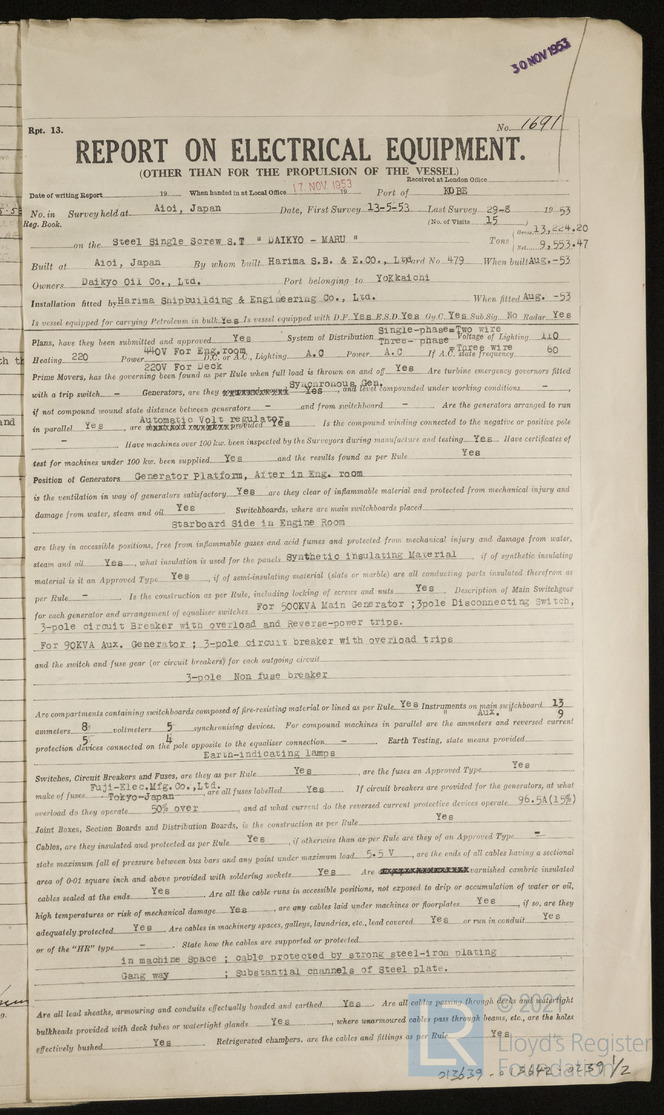 30 NOV 1953
Rpt. 13.
No. 1691
REPORT ON ELECTRICAL EQUIPMENT.
(OTHER THAN FOR THE PROPULSION OF THE VESSEL)
Received at London Office
Date of writing Report 19 When handed in at Local Office 17 NOV. 1953 19 Port of KOBE
No. in Survey held at Aioi, Japan Date, First Survey 13-5-53 Last Survey 29-8 1953
Reg. Book. (No. of Visits 15 )
on the Steel Single Screw S.T " DAIKYO - MARU " Tons Gross 13,224.20
Net 9,553.47
Built at Aioi, Japan By whom built Harima S.B. & E.CO., Ltd Yard No 479 When built Aug.-53
Owners Daikyo Oil Co., Ltd. Port belonging to Yokkaichi
Installation fitted by Harima Shipbuilding & Engineering Co., Ltd. When fitted Aug. -53
Is vessel equipped for carrying Petroleum in bulk Yes Is vessel equipped with D.F. Yes E.S.D. Yes Gy.C. Yes Sub.Sig. No Radar Yes
Plans, have they been submitted and approved Yes System of Distribution Single-phase=Two wire Three- phase =Three wire Voltage of Lighting 110
Heating 220 Power 440V For Eng.room 220V For Deck D.C. or A.C., Lighting A.C Power A.C If A.C. state frequency 60
Prime Movers, has the governing been found as per Rule when full load is thrown on and off Yes Are turbine emergency governors fitted
with a trip switch - Generators, are they Synchronous Gen. Yes, and level compounded under working conditions -
if not compound wound state distance between generators - and from switchboard - Are the generators arranged to run
in parallel Yes, are Automatic Volt regulator provided Yes Is the compound winding connected to the negative or positive pole
- Have machines over 100 kw. been inspected by the Surveyors during manufacture and testing Yes Have certificates of
test for machines under 100 kw. been supplied Yes and the results found as per Rule Yes
Position of Generators Generator Platform, After in Eng. room
is the ventilation in way of generators satisfactory Yes are they clear of inflammable material and protected from mechanical injury and
damage from water, steam and oil Yes Switchboards, where are main switchboards placed
Starboard Side in Engine Room
are they in accessible positions, free from inflammable gases and acid fumes and protected from mechanical injury and damage from water,
steam and oil Yes, what insulation is used for the panels Synthetic insulating Material if of synthetic insulating
material is it an Approved Type Yes, if of semi-insulating material (slate or marble) are all conducting parts insulated therefrom as
per Rule - Is the construction as per Rule, including locking of screws and nuts Yes Description of Main Switchgear
for each generator and arrangement of equaliser switches For 500KVA Main Generator ;3pole Disconnecting Switch,
3-pole circuit Breaker with overload and Reverse-power trips.
For 90KVA Aux. Generator ; 3-pole circuit breaker with overload trips
and the switch and fuse gear (or circuit breakers) for each outgoing circuit
3-pole Non fuse breaker
Are compartments containing switchboards composed of fire-resisting material or lined as per Rule Yes Instruments on main switchboard 13
" Aux. 9
ammeters 8 voltmeters 5 synchronising devices. For compound machines in parallel are the ammeters and reversed current
5 4
protection devices connected on the pole opposite to the equaliser connection - Earth Testing, state means provided
Earth-indicating lamps
Switches, Circuit Breakers and Fuses, are they as per Rule Yes, are the fuses an Approved Type Yes
make of fuses Fuji-Elec.Mfg.Co.,Ltd. Tokyo-Japan are all fuses labelled Yes If circuit breakers are provided for the generators, at what
overload do they operate 50% over, and at what current do the reversed current protective devices operate 96.5A(15%)
Joint Boxes, Section Boards and Distribution Boards, is the construction as per Rule Yes
Cables, are they insulated and protected as per Rule Yes, if otherwise than as per Rule are they of an Approved Type -
state maximum fall of pressure between bus bars and any point under maximum load 5.5 V, are the ends of all cables having a sectional
area of 0·01 square inch and above provided with soldering sockets Yes Are varnished cambric insulated
cables sealed at the ends Yes Are all the cable runs in accessible positions, not exposed to drip or accumulation of water or oil,
high temperatures or risk of mechanical damage Yes, are any cables laid under machines or floorplates Yes, if so, are they
adequately protected Yes Are cables in machinery spaces, galleys, laundries, etc., lead covered Yes or run in conduit Yes
or of the "HR" type - State how the cables are supported or protected
in machine Space ; cable protected by strong steel-iron plating
Gang way ; Substantial channels of Steel plate.
Are all lead sheaths, armouring and conduits effectually bonded and earthed Yes Are all cables passing through decks and watertight
bulkheads provided with deck tubes or watertight glands Yes, where unarmoured cables pass through beams, etc., are the holes
effectively bushed Yes Refrigerated chambers, are the cables and fittings as per Rule Yes
© 2021
Lloyd's Register
Foundation
013639 - 013642 - 0239 1/2